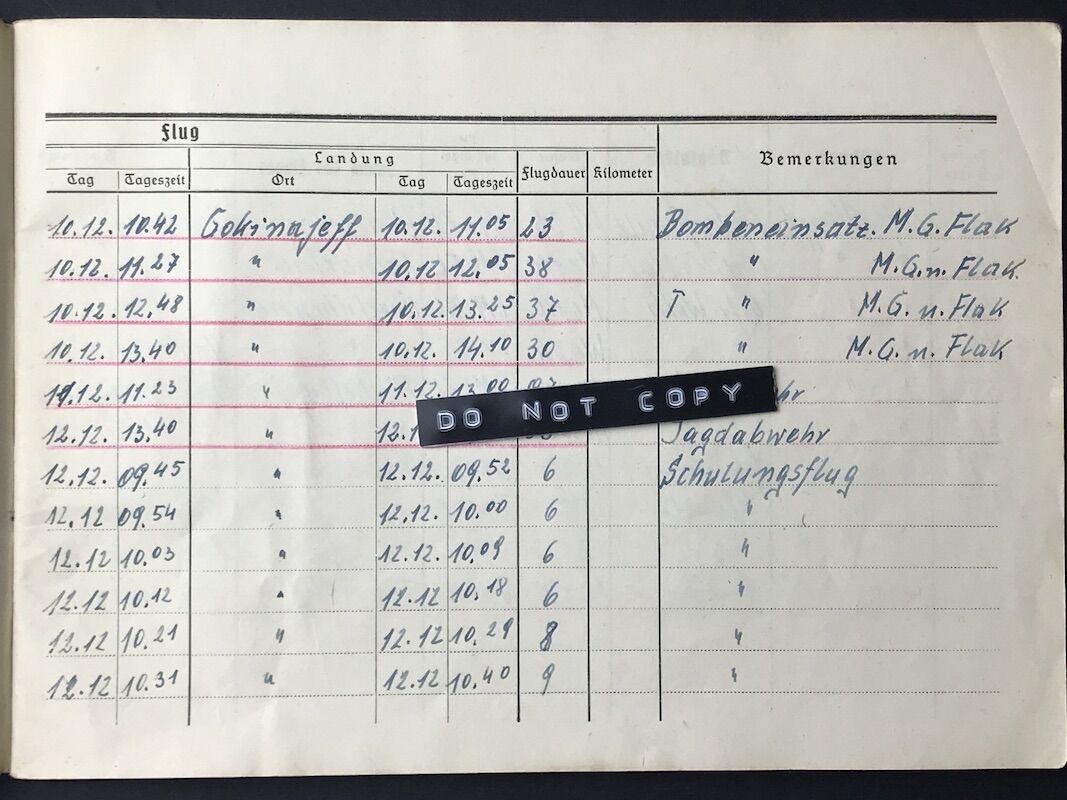 Flug
Landung
Bemerkungen
Tag Tageszeit Ort Tag Tageszeit Flugdauer Kilometer
10.12. 10.42 Gokinajeff 10.12. 11.05 23 Bombeneinsatz. M.G. Flak
10.12. 11.27 " 10.12 12.05 38 " M.G.u. Flak.
10.12. 12.48 " 10.12. 13.25 37 T " M.G. u. Flak
10.12. 13.40 " 10.12. 14.10 30 " M.G. u. Flak
11.12. 11.23 " 11.12. 13.00 hr
12.12. 13.40 " 12.1 Jagdabwehr
DO NOT COPY
12.12. 09.45 " 12.12. 09.52 6 Schulungsflug
12.12 09.54 " 12.12. 10.00 6 "
12.12 10.03 " 12.12. 10.09 6 "
12.12 10.12 " 12.12 10.18 6 "
12.12 10.21 " 12.12 10.29 8 "
12.12 10.31 " 12.12 10.40 9 "